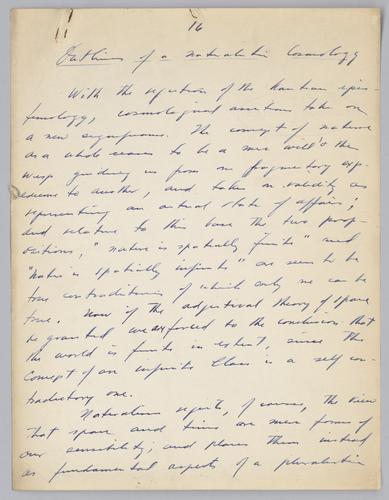 16
Outlines of a naturalistic Cosmology
With the rejection of the Kantian epis-
temology, cosmological assertions take on
a new significance. The concept of nature
as a whole ceases to be a mere will o the
wisp guiding us from one fragmentary
to another, and takes on validity as
representing an actual state of affairs;
and relative to this base the two prop-
ositions, "nature is spatially finite" and
"Nature is spatially infinite" are seen to be
true contradictories of which only one can be
true. Now if the adjectival theory of space
be granted we are forced to the conclusion that
the world is finite in extent, since the
concept of an infinite class is a self con-
tradictory one.
Naturalism rejects, of course, the view
that space and time are mere forms of
our sensibility; and places them instead
as fundamental aspects of a pluralistic